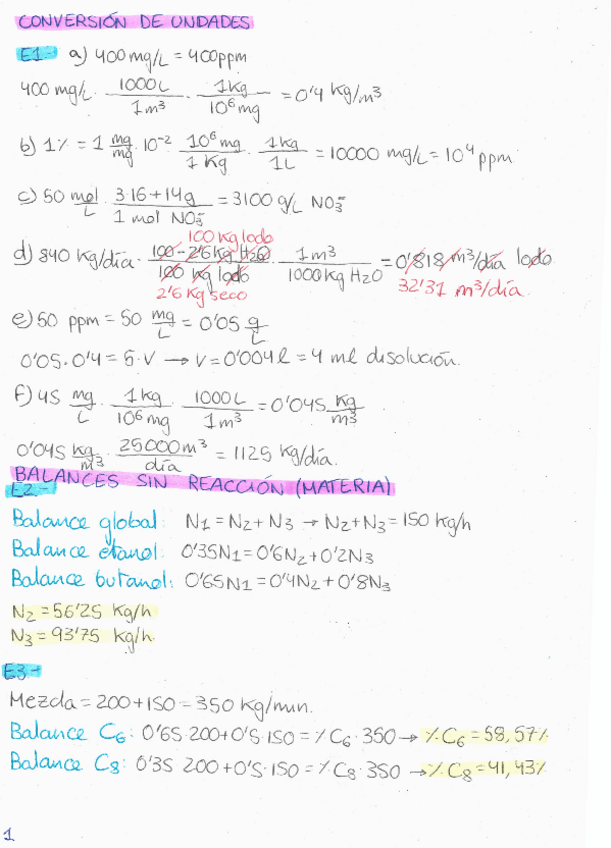 CONVERSIÓN DE UNDADES
E1- a) 400 mg/L = 400ppm
400 mg/L · 1000L / 1m³ · 1Kg / 10⁶ mg = 0'4 Kg/m³
b) 1% = 1 mg/mg · 10⁻² · 10⁶ mg / 1 Kg · 1kg / 1L = 10000 mg/L = 10⁴ ppm
c) 50 mol/L · 3·16+14g / 1 mol NO₃⁻ = 3100 g/L NO₃⁻
100 Kg lodo
d) 840 Kg/día · 100-2'6Kg H₂O / 100 Kg lodo · 1m³ / 1000Kg H₂O = 0'818 m³/día lodo
2'6 Kg seco 32'31 m³/día.
e) 50 ppm = 50 mg/L = 0'05 g/L
0'05·0'4 = 5·V → V = 0'004l = 4 ml disolución.
f) 45 mg/L · 1kg / 10⁶ mg · 1000L / 1m³ = 0'045 Kg/m³
0'045 kg/m³ · 25000m³/día = 1125 Kg/día.
BALANCES SIN REACCIÓN (MATERIA)
E2-
Balance global: N1 = N2 + N3 → N2 + N3 = 150 Kg/h
Balance etanol: 0'35N1 = 0'6N2 + 0'2N3
Balance butanol: 0'65N1 = 0'4N2 + 0'8N3
N2 = 56'25 Kg/h
N3 = 93'75 Kg/h.
E3-
Mezcla = 200 + 150 = 350 Kg/min.
Balance C6: 0'65·200 + 0'5·150 = % C6 · 350 → % C6 = 58,57%
Balance C8: 0'35 200 + 0'5·150 = % C8 · 350 → % C8 = 41,43%
1